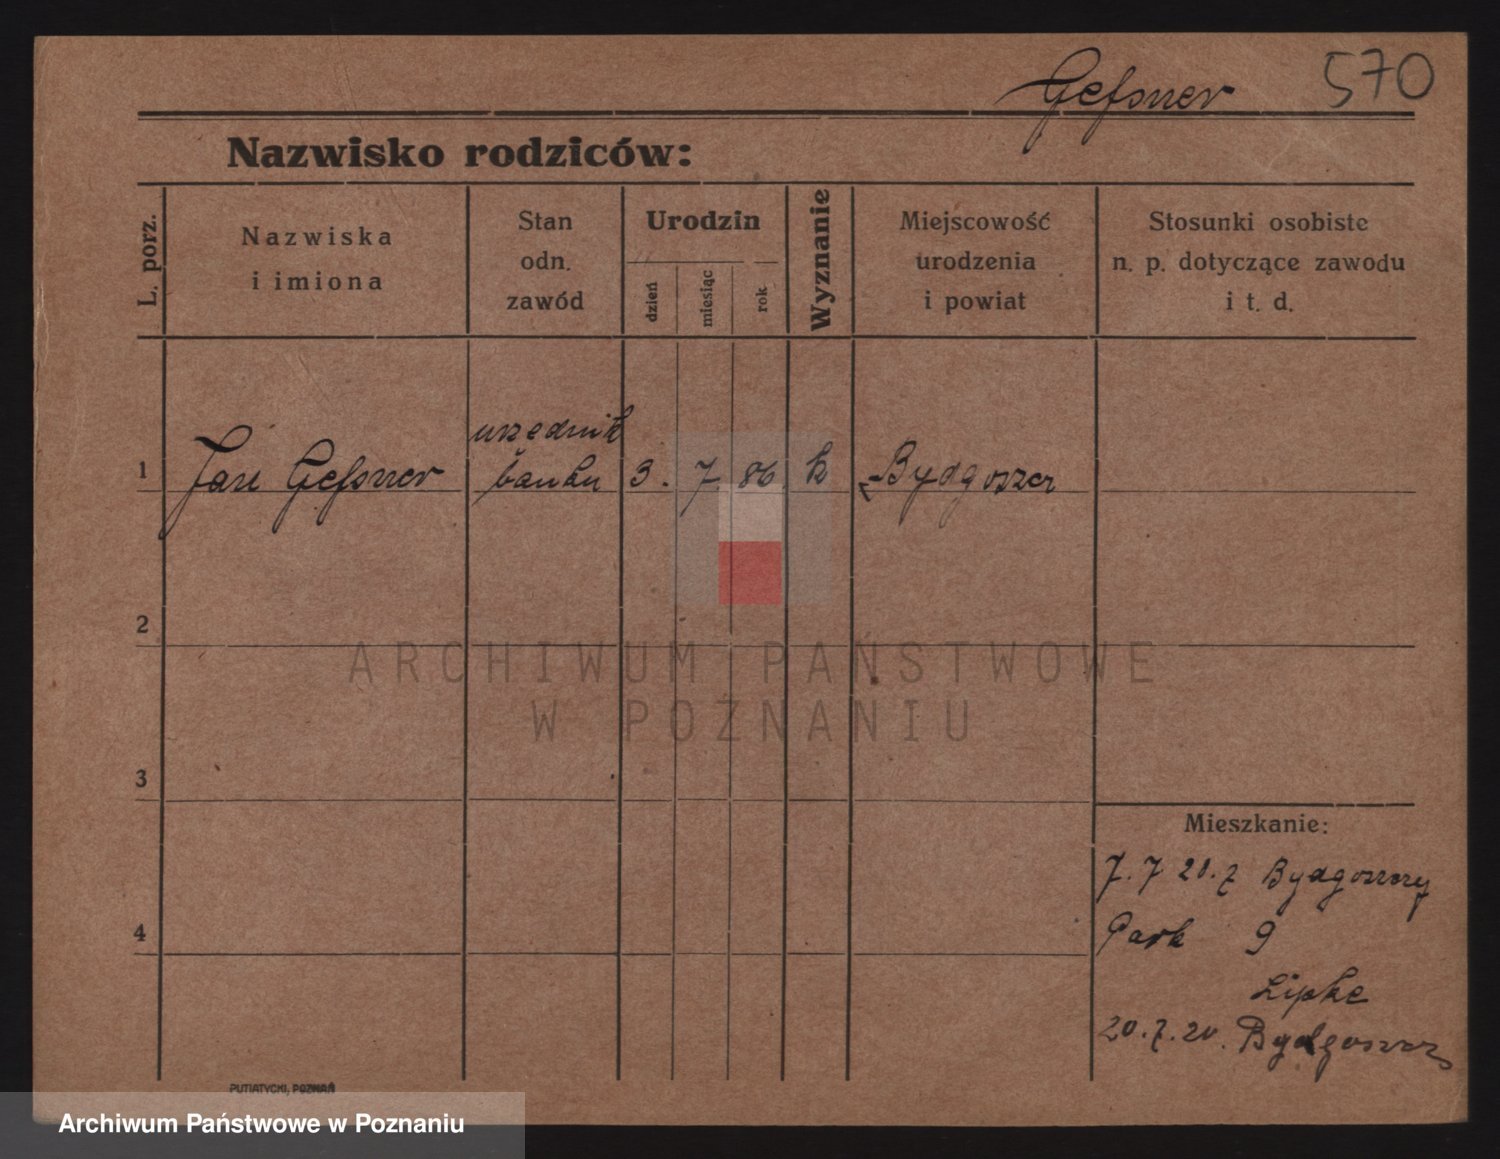 Gefsner 570
Nazwisko rodziców:
L. porz.
Nazwiska
i imiona
Stan
odn.
zawód
Urodzin
dzień
miesiąc
rok
Wyznanie
Miejscowość
urodzenia
i powiat
Stosunki osobiste
n. p. dotyczące zawodu
i t. d.
urzędnik
1 Jan Gefsner banku 3. 7 86 k Bydgoszcz
2
ARCHIWUM PAŃSTWOWE
W POZNANIU
3
Mieszkanie:
7. 7 20. z Bydgoszczy
4
Park 9
Lipke
20.7.20. Bydgoszcz
PUTIATYCKI, POZNAŃ
Archiwum Państwowe w Poznaniu